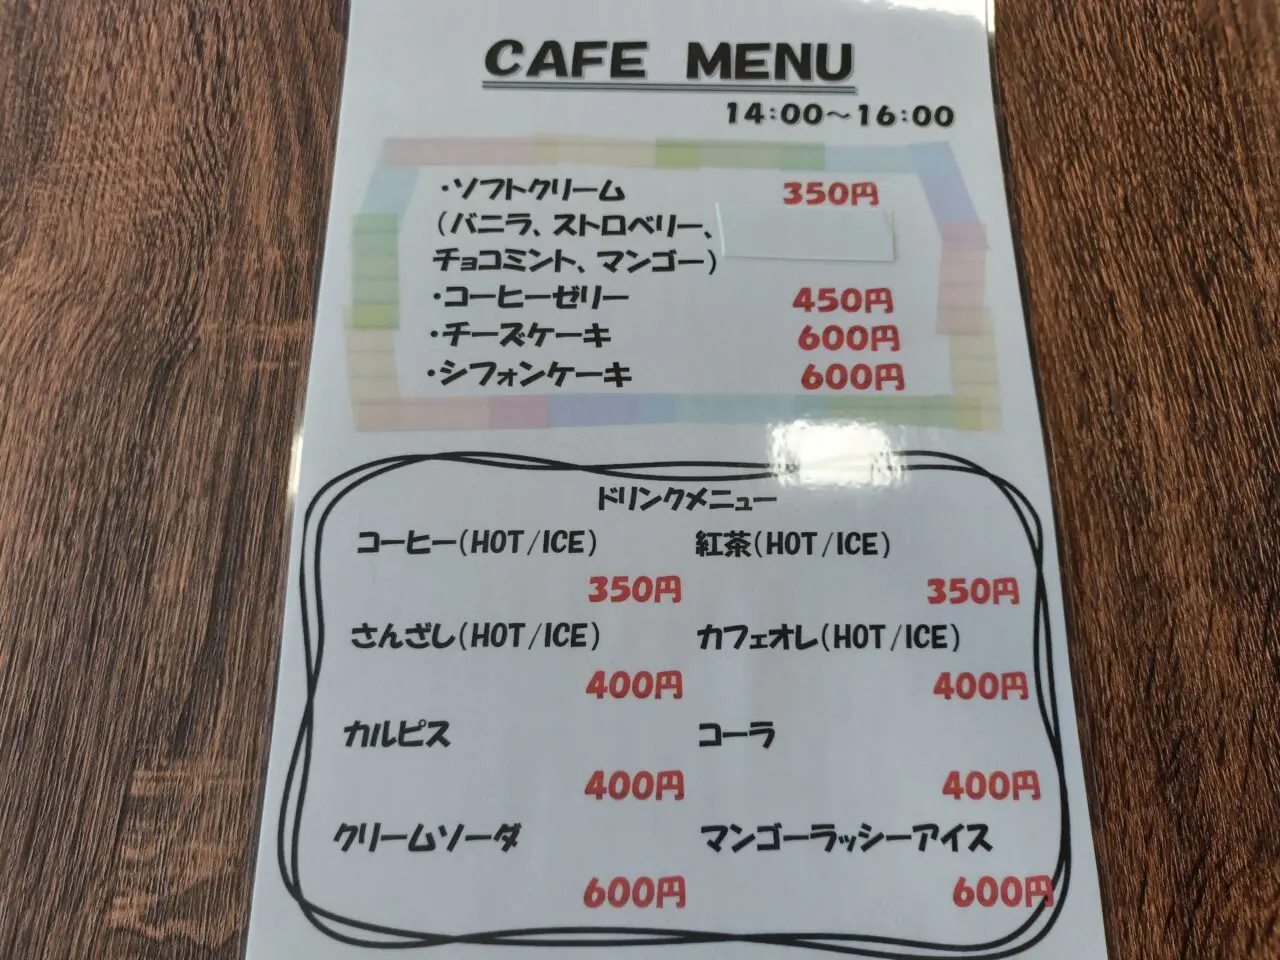 CAFE MENU
14:00～16:00
・ソフトクリーム 350円
(バニラ、ストロベリー、
チョコミント、マンゴー)
・コーヒーゼリー 450円
・チーズケーキ 600円
・シフォンケーキ 600円
ドリンクメニュー
コーヒー(HOT/ICE) 紅茶(HOT/ICE)
350円 350円
さんざし(HOT/ICE) カフェオレ(HOT/ICE)
400円 400円
カルピス コーラ
400円 400円
クリームソーダ マンゴーラッシーアイス
600円 600円